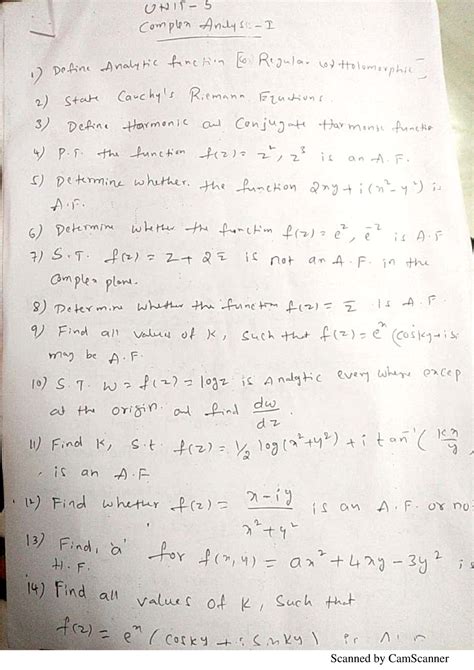 UNIT - 5
Complex Analysis - I
1) Define Analytic function [(or) Regular (or) Holomorphic]
2) State Cauchy's Riemann Equations.
3) Define Harmonic and Conjugate Harmonic functio
4) P.T. the function f(z) = z², z³ is an A.F.
5) Determine whether the function 2xy + i(x² - y²) is
A.F.
6) Determine whether the function f(z) = e^z, e^-z is A.F
7) S.T. f(z) = z + 2z̄ is not an A.F. in the
complex plane.
8) Determine whether the function f(z) = z̄ is A.F.
9) Find all values of K, such that f(z) = e^x (cosky + isi
may be A.F.
10) S.T. w = f(z) = logz is Analytic every where excep
at the origin and find dw/dz.
11) Find K, s.t. f(z) = 1/2 log(x²+y²) + i tan⁻¹ (kx/y
is an A.F
12) Find whether f(z) = x-iy / x²+y² is an A.F. or no
13) Find, 'a' for f(x,y) = ax² + 4xy - 3y² is
H.F.
14) Find all values of K, Such that
f(z) = e^x (cosky + i sinky) is
Scanned by CamScanner